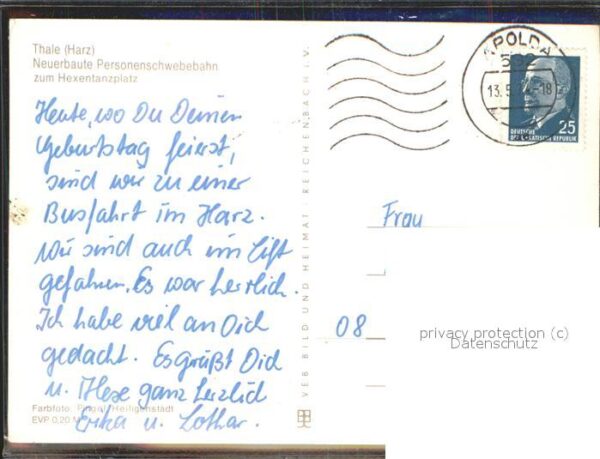 Thale (Harz)
Neuerbaute Personenschwebebahn
zum Hexentanzplatz
Heute, wo Du Deinen
Geburtstag feierst,
sind wir zu einer
Busfahrt im Harz.
Wir sind auch im Lift
gefahren. Es war herrlich.
Ich habe viel an Dich
gedacht. Es grüßt Dich
u. ganz herzlich
Erika u. Lothar.
Farbfoto: Heiligenstadt
EVP 0,20 M
VEB BILD UND HEIMAT REICHENBACH I. V.
APOLDA
13.5. -18
25
DEUTSCHE
DEMOKRATISCHE REPUBLIK
Frau
08
privacy protection (c)
Datenschutz